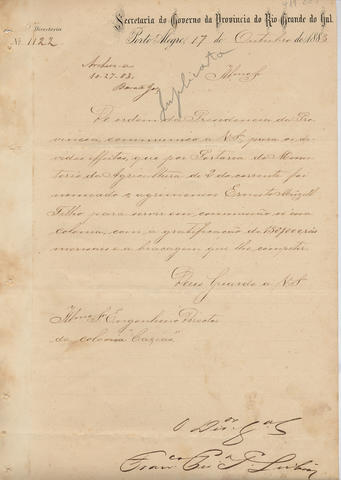 Directoria
Secretaria do Governo da Provincia do Rio Grande do Sul.
Nº 1122
Porto Alegre, 17 de Outubro de 1883
Archive-se
10-27-83
Duplicata
Illmo Sr
De ordem da Presidencia da Pro-
vincia, communico a V.S., para os de-
vidos effeitos, que por Portaria do Minis-
terio da Agricultura de 2 do corrente foi
nomeado o agrimensor Ernesto
Filho para servir em commissão n'essa
colonia, com a gratificação de réis
mensaes e a braçagem que lhe competir.
Deus Guarde a V.S
Illmo Sr Engenheiro Director
da colonia Caxias
O Dir Gal